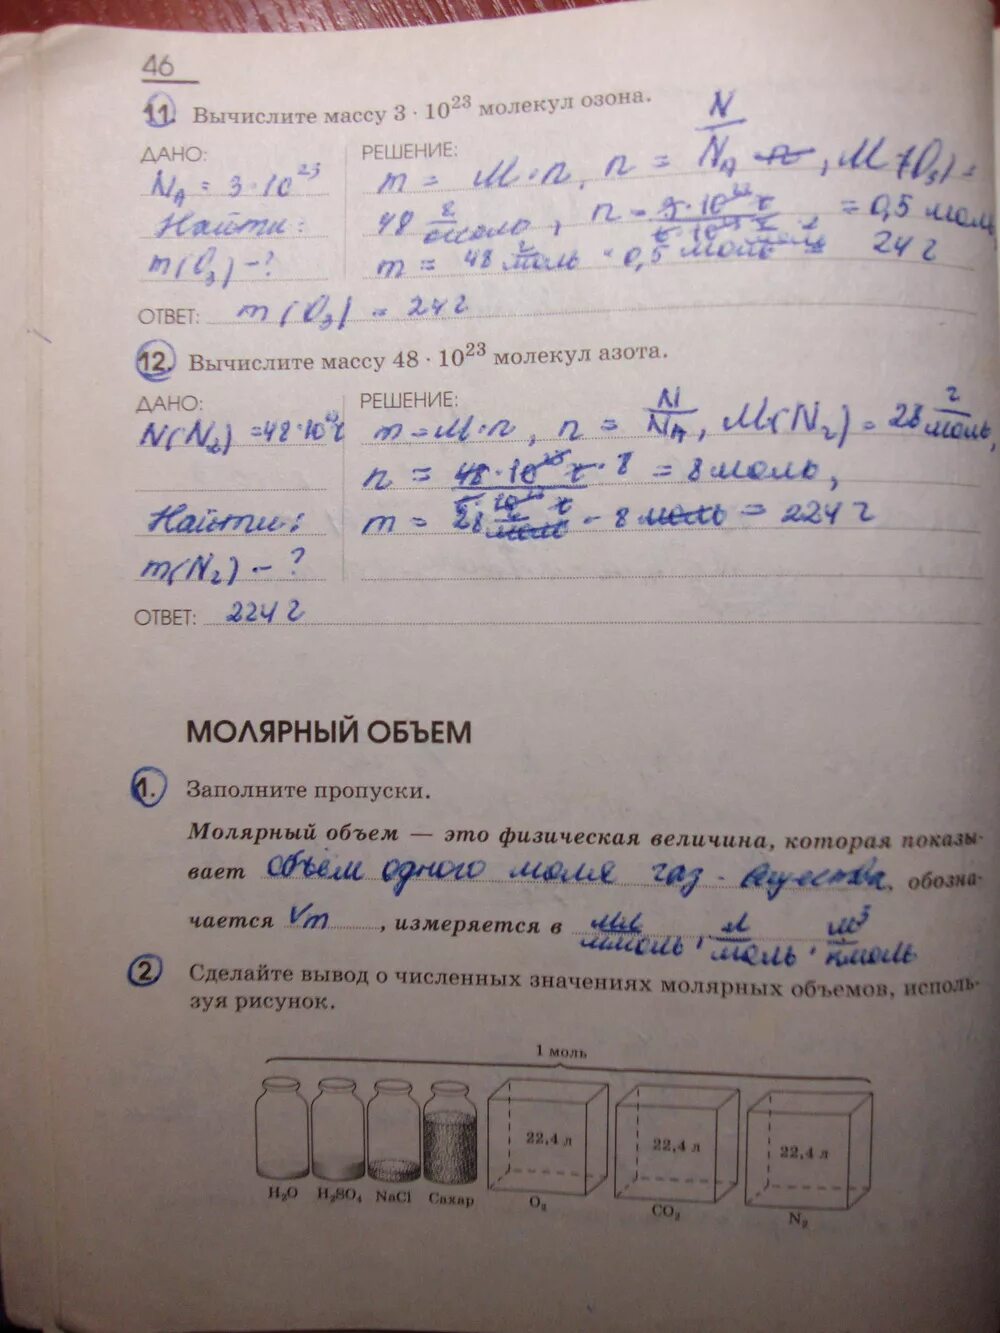 46
11. Вычислите массу 3 · 10²³ молекул озона.
ДАНО:
N_A = 3·10²³
Найти:
m(O₃) – ?
РЕШЕНИЕ:
m = M·n, n = N/N_A, M(O₃) =
48 г/моль, n = = 0,5 моль
m = 48 г/моль · 0,5 моль = 24 г
ОТВЕТ: m(O₃) = 24 г
12. Вычислите массу 48 · 10²³ молекул азота.
ДАНО:
N(N₂) = 48·10²³
Найти:
m(N₂) – ?
РЕШЕНИЕ:
m = M·n, n = N/N_A, M(N₂) = 28 г/моль,
n = 48·10²³ 8 = 8 моль,
m = 28 г/моль · 8 моль = 224 г
ОТВЕТ: 224 г
МОЛЯРНЫЙ ОБЪЕМ
1. Заполните пропуски.
Молярный объем — это физическая величина, которая показы-
вает объём одного моля газ. вещества, обозна-
чается Vm, измеряется в мл/ммоль, л/моль, м³/кмоль
2. Сделайте вывод о численных значениях молярных объемов, исполь-
зуя рисунок.
1 моль
22,4 л 22,4 л 22,4 л
H₂O H₂SO₄ NaCl Сахар O₂ CO₂ N₂